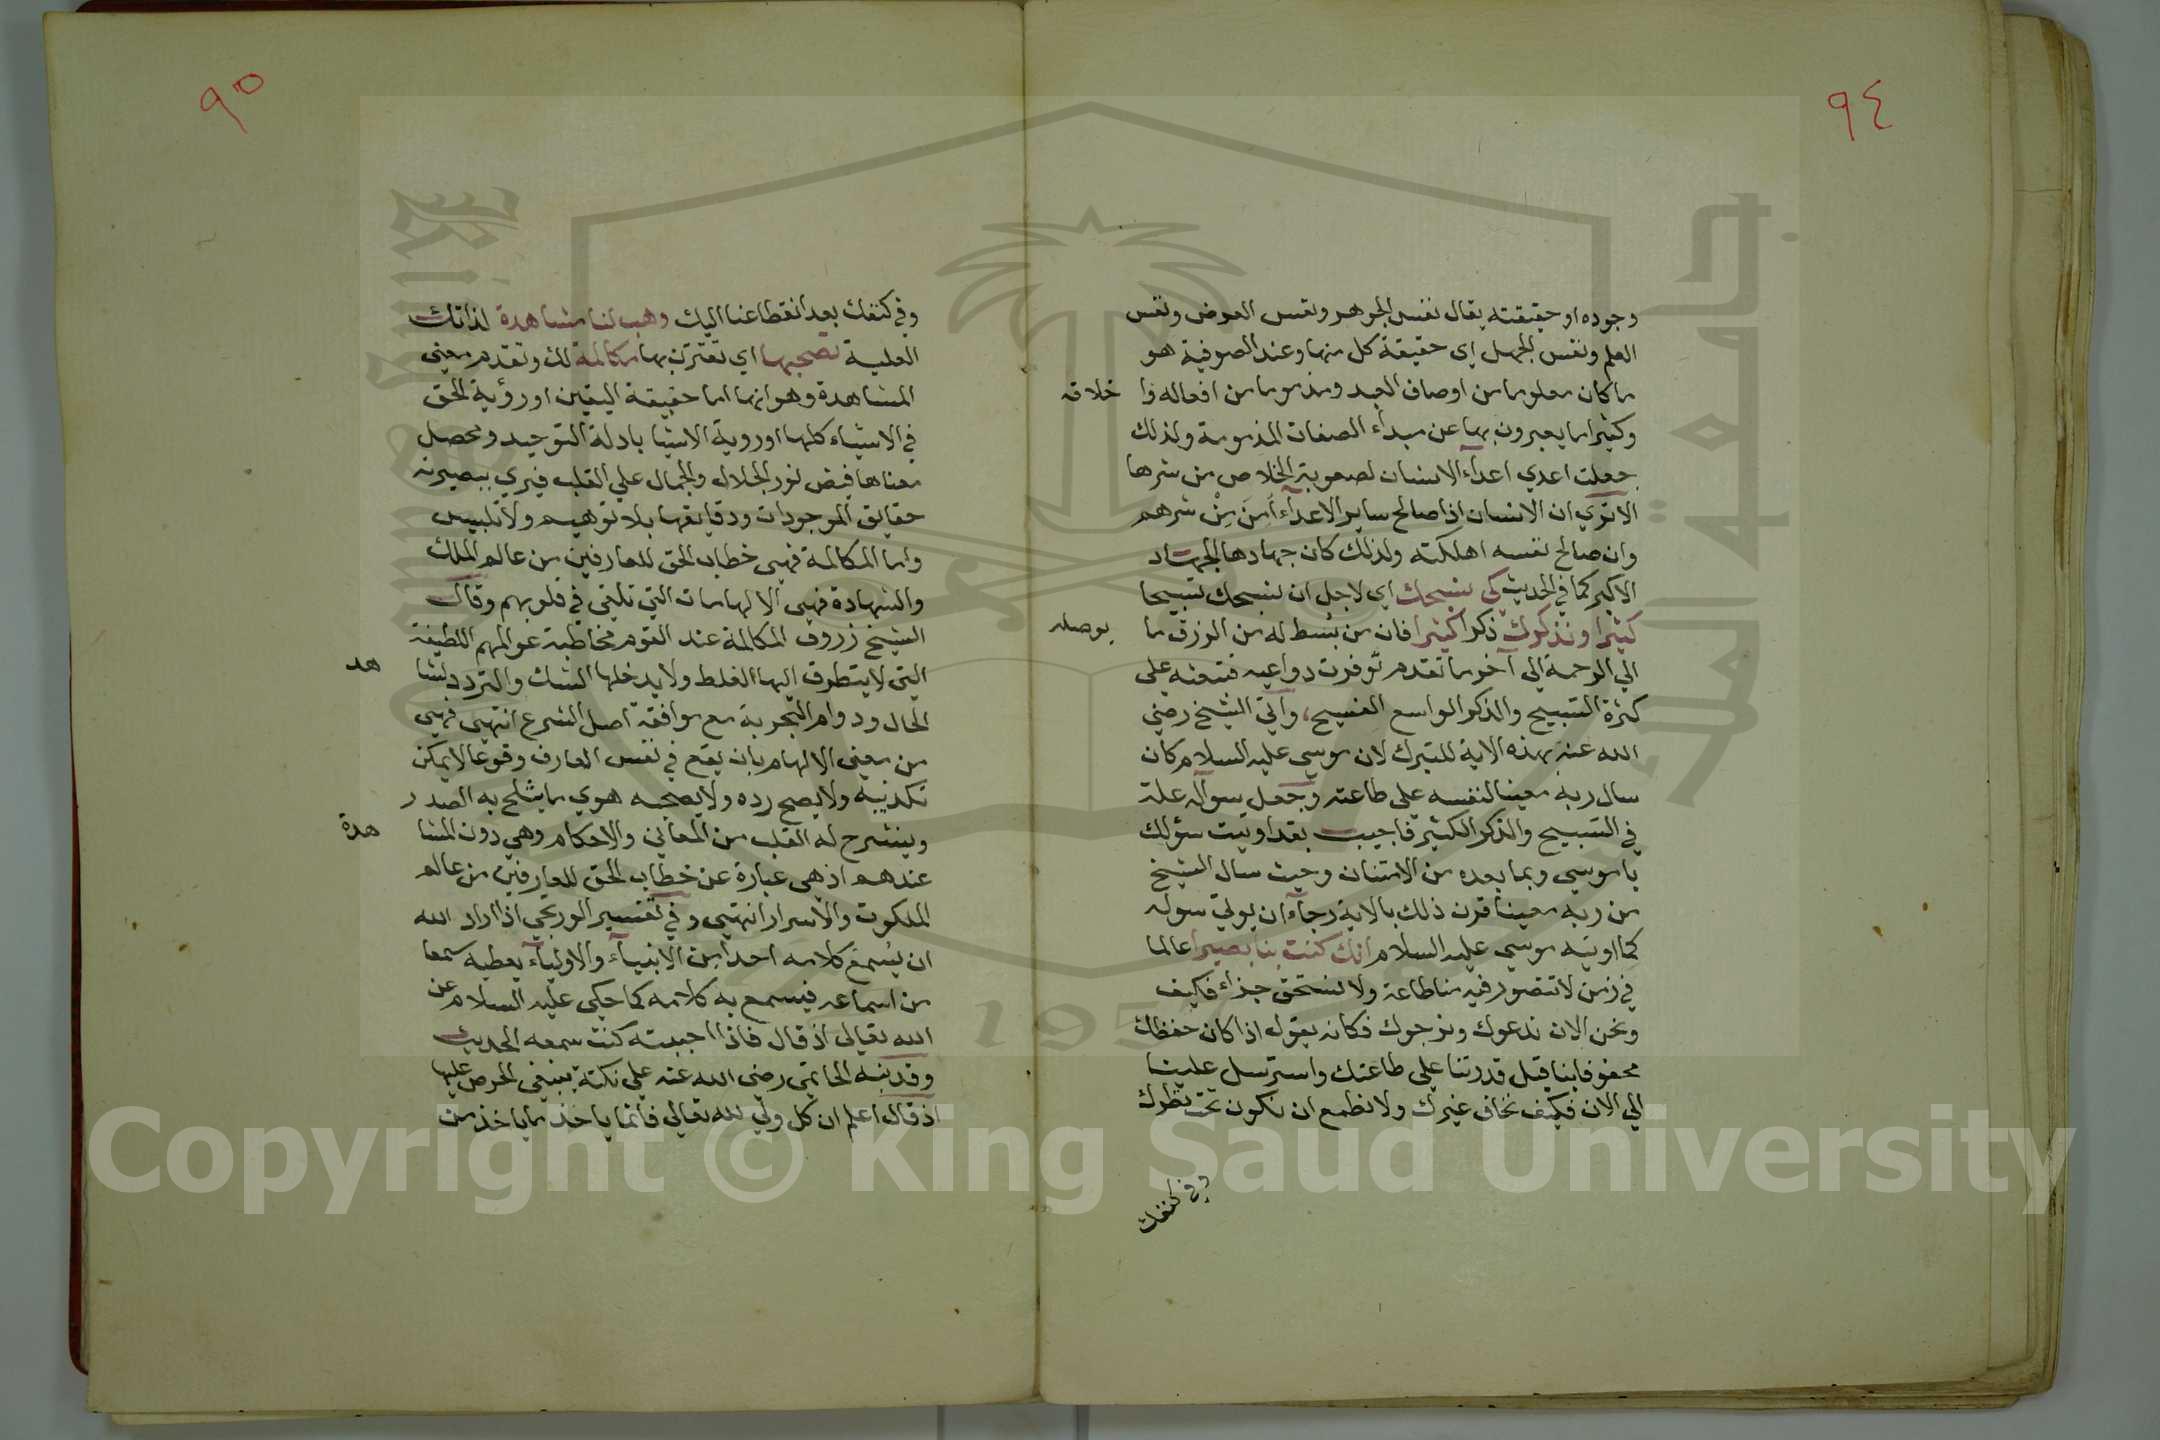 ٩٤
وجوده او حقيقته يقال نفس الجوهر ونفس العرض ونفس
العلم ونفس الجهل اي حقيقة كل منها وعند الصوفية هو
ما كان معلوما من اوصاف العبد ومذموما من افعاله وا خلاقه
وكثيرا ما يعبرون بها عن مبدأ الصفات المذمومة ولذلك
جعلت اعدي اعداء الانسان لصعوبة الخلاص من شرها
الا تري ان الانسان اذا صالح ساير الاعداء أمن من شرهم
وان صالح نفسه اهلكته ولذلك كان جهادها الجهاد
الاكبر كما في الحديث كي نسبحك اي لاجل ان نسبحك تسبيحا
كثيرا ونذكرك ذكرا كثيرا فان من بُسط له من الرزق ما يوصله
الي الرحمة الي آخر ما تقدم توفرت دواعيه فتبعثه علي
كثرة التسبيح والذكر الواسع الفسيح، واتي الشيخ رضي
الله عنه بهذه الاية للتبرك لان موسي عليه السلام كان
سال ربه معينا لنفسه علي طاعته وجعل سواله علة
في التسبيح والذكر الكثير فاجيب بقد اوتيت سؤلك
يا موسي وبما بعده من الامتنان وحيث سال الشيخ
من ربه معينا قرن ذلك بالاية رجاء ان يولي سوله
كما اوتيه موسي عليه السلام انك كنت بنا بصيرا عالما
في زمن لا تتصور فيه منا طاعة ولا نستحق جزاء فكيف
ونحن الان ندعوك ونرجوك فكانه يقول اذا كان حفظك
محفوفا بنا قبل قدرتنا علي طاعتك واسترسل علينا
الي الان فكيف نخاف غيرك ولا نطمع ان نكون تحت نظرك
وفي كنفك
٩٥
وفي كنفك بعد انقطاعنا اليك وهب لنا مشاهدة لذاتك
العلية تصحبها اي تقترن بها مكالمة لك وتقدم معني
المشاهدة وهو انها اما حقيقة اليقين او رؤية الحق
في الاشياء كلها او روية الاشيا بادلة التوحيد ومحصل
معناها فيض نور الجلال والجمال علي القلب فيري ببصيرته
حقايق الموجودات ودقايقها بلا توهيم ولا تلبيس
واما المكالمة فهي خطاب الحق للعارفين من عالم الملك
والشهادة فهي الالهامات التي تلقي في قلوبهم وقال
الشيخ زروق المكالمة عند القوم مخاطبة عوالمهم اللطيفة
التي لا يتطرق اليها الغلط ولا يدخلها الشك والتردد لشا هد
الحال ودوام التجربة مع موافقة اصل الشرع انتهي فهي
من معني الالهام بان يقع في نفس العارف وقوعا لا يمكن
تكذيبه ولا يصح رده ولا يصحبه هوي ما يثلج به الصدر
وينشرح له القلب من المعاني والاحكام وهي دون المشا هدة
عندهم اذ هي عبارة عن خطاب الحق للعارفين من عالم
الملكوت والاسرار انتهي وفي تفسير الورتجي اذا اراد الله
ان يُسمع كلامه احدا من الانبياء والاولياء يعطيه سمعا
من اسماعه فيسمع به كلامه كما حكي عليه السلام عن
الله تعالي اذ قال فاذا احببته كنت سمعه الحديث
وقد نبه الحاتمي رضي الله عنه علي نكتة ينبغي الحرص عليها
اذ قال اعلم ان كل ولي لله تعالي فانما ياخذ ما ياخذ من
Copyright © King Saud University
جامعة الملك سعود
1957